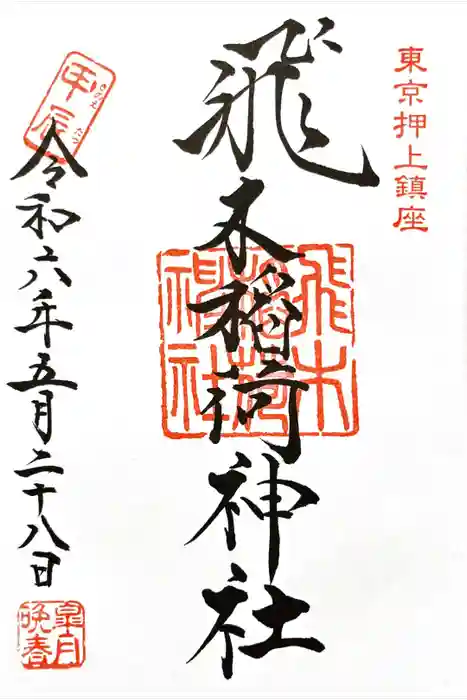 東京押上鎮座
飛木稲荷神社
飛木
稲荷
神社
甲辰
きのえ たつ
令和六年五月二十八日
皐月
晩春